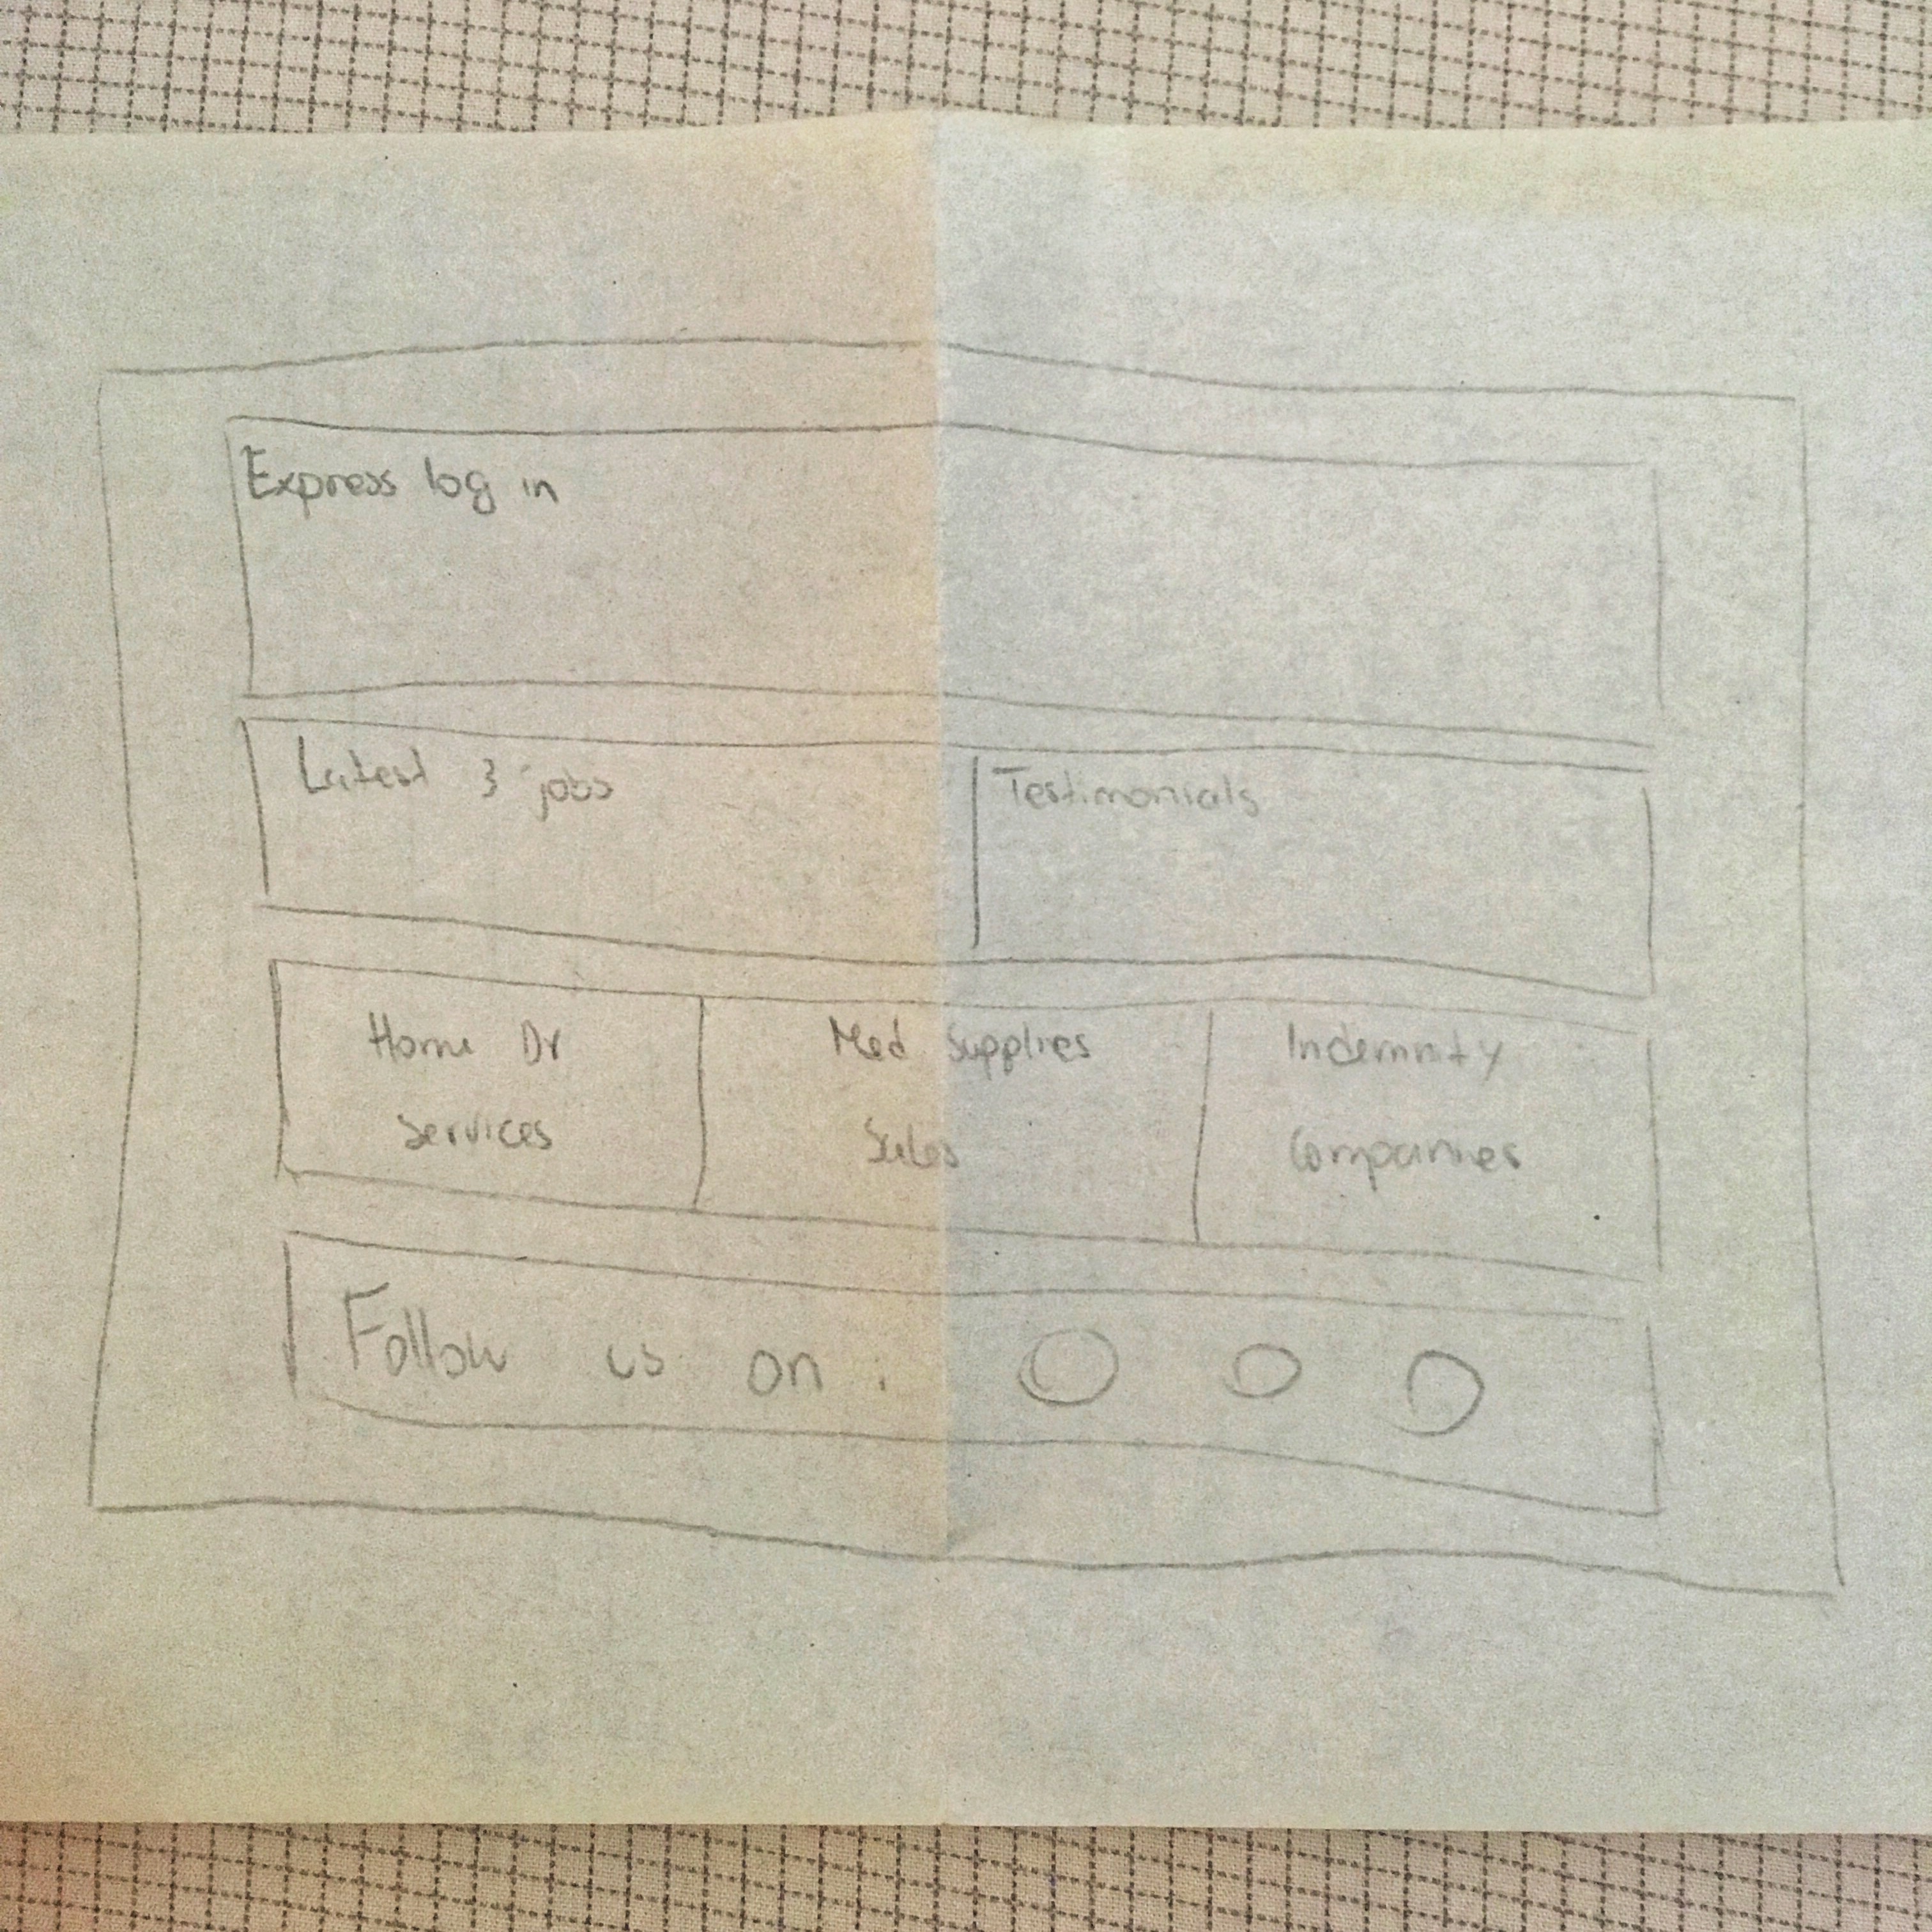 Express log in
Latest 3 jobs
Testimonials
Home Dr
Services
Med Supplies
Sales
Indemnity
Companies
Follow us on :